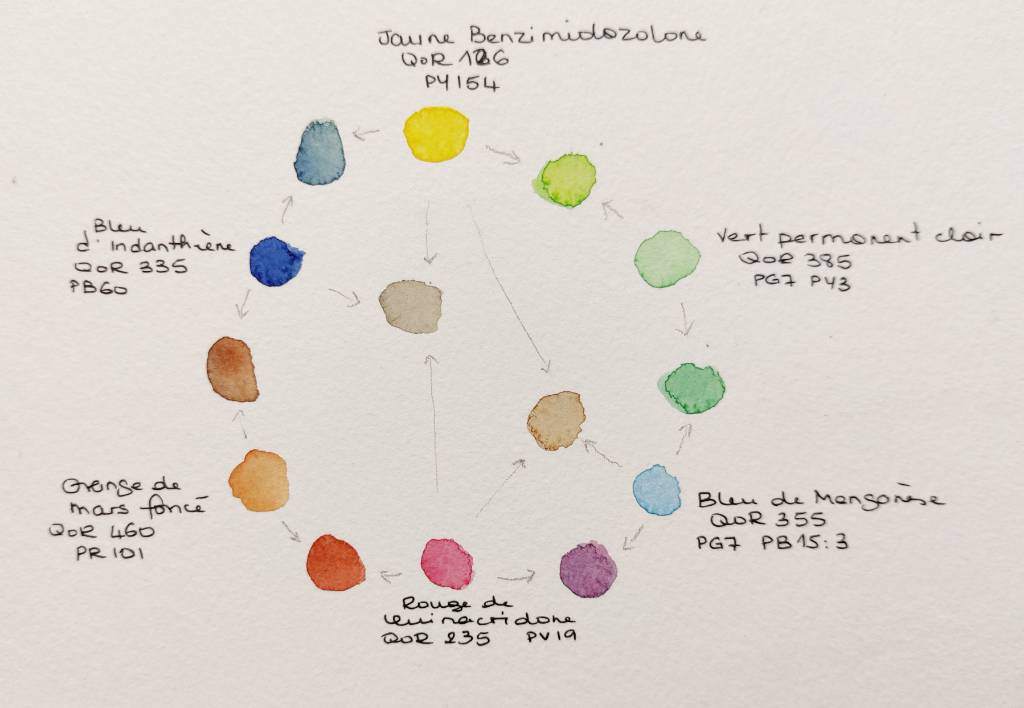 Jaune Benzimidazolone
QoR 126
PY154
Bleu
d'Indanthrène
QoR 335
PB60
Vert permanent clair
QoR 385
PG7 PY3
Orange de
mars foncé
QoR 460
PR101
Bleu de Manganèse
QoR 355
PG7 PB15:3
Rouge de
Quinacridone
QoR 235 PV19